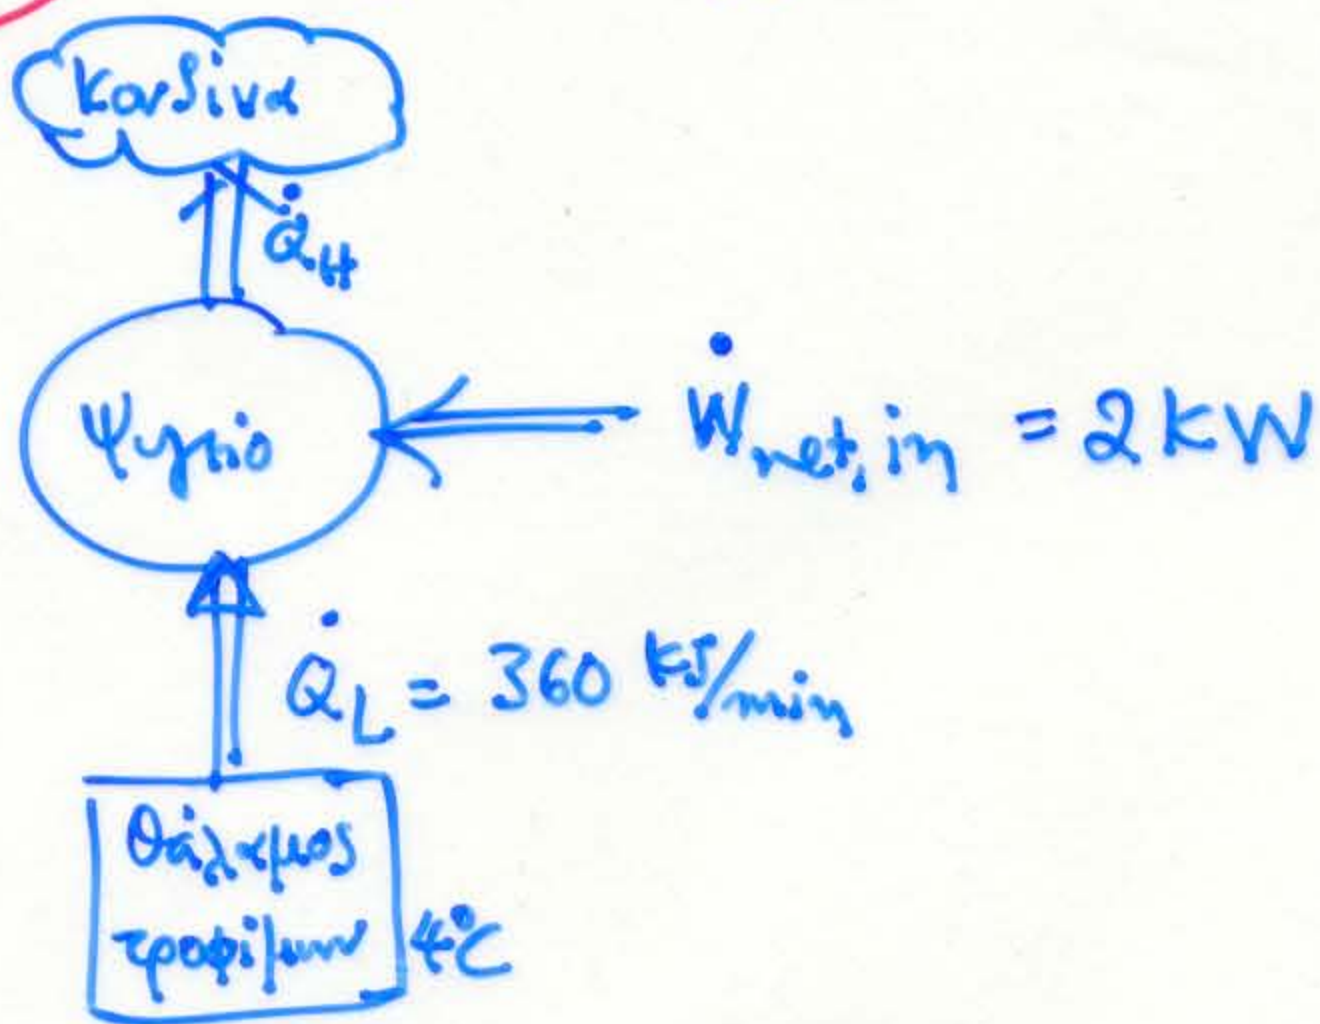 Κουζίνα
Q̇_H
Ψυγείο
Ẇ_net,in = 2 kW
Q̇_L = 360 kJ/min
Θάλαμος
τροφίμων 4°C